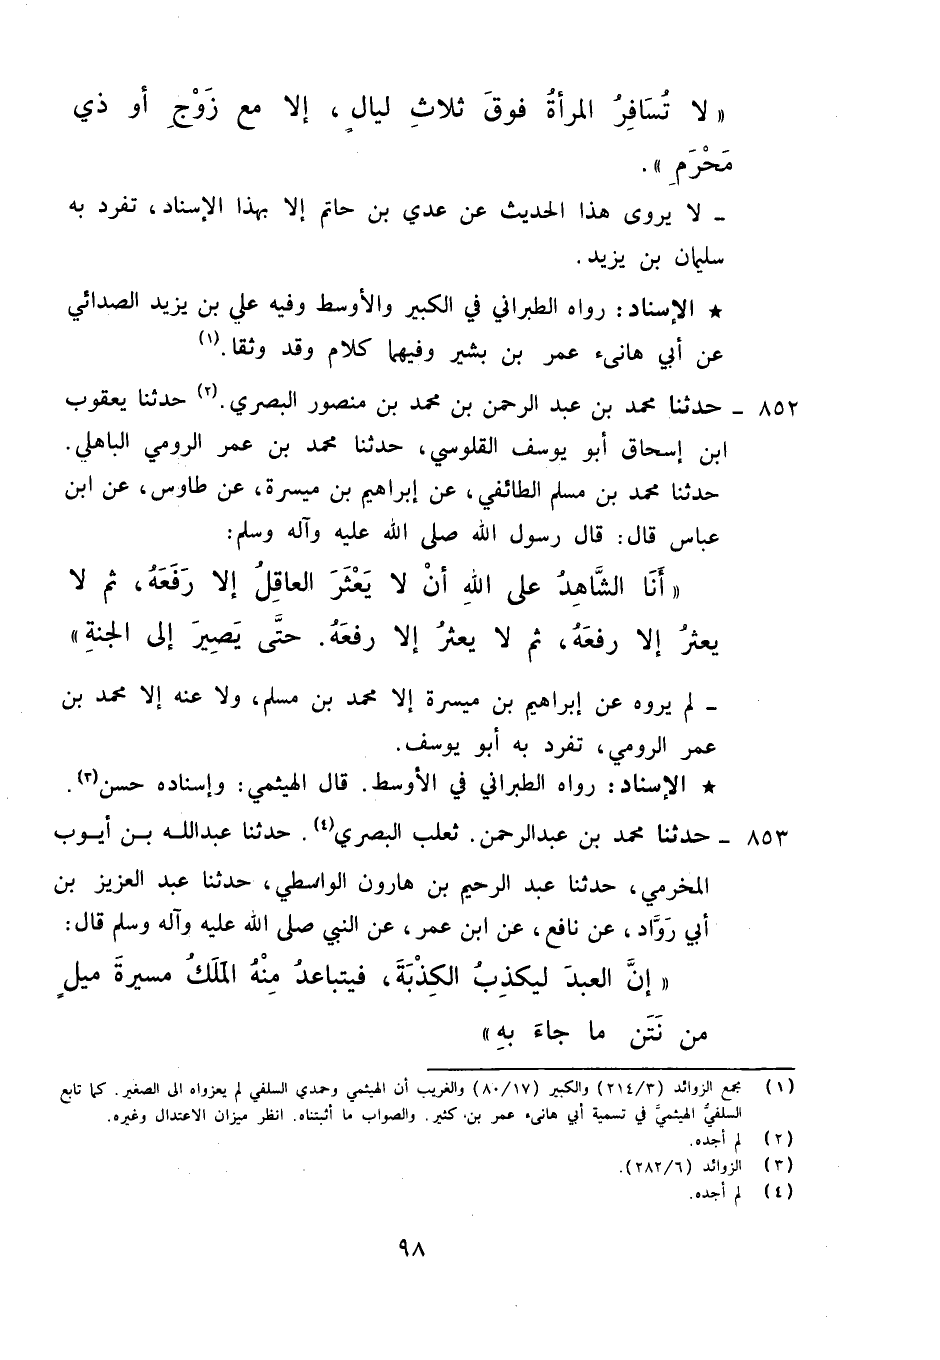 « لا تُسَافِرُ المرأةُ فوقَ ثلاثِ ليالٍ ، إلا مع زَوْجٍ أو ذي
مَحْرَمٍ » .
ـ لا يروى هذا الحديث عن عدي بن حاتم إلا بهذا الإسناد، تفرد به
سليمان بن يزيد.
★ الإسناد: رواه الطبراني في الكبير والأوسط وفيه علي بن يزيد الصدائي
عن أبي هانىء عمر بن بشير وفيهما كلام وقد وثقا.(١)
٨٥٢ ـ حدثنا محمد بن عبد الرحمن بن محمد بن منصور البصري.(٢) حدثنا يعقوب
ابن إسحاق أبو يوسف القلوسي، حدثنا محمد بن عمر الرومي الباهلي.
حدثنا محمد بن مسلم الطائفي، عن إبراهيم بن ميسرة، عن طاوس، عن ابن
عباس قال: قال رسول الله صلى الله عليه وآله وسلم:
« أَنَا الشَّاهِدُ على اللهِ أنْ لا يَعْثَرَ العاقِلُ إلا رَفَعَهُ، ثم لا
يعثرُ إلا رفعَهُ، ثم لا يعثرُ إلا رفعَهُ. حتَّى يَصِيرَ إلى الجنةِ »
ـ لم يروه عن إبراهيم بن ميسرة إلا محمد بن مسلم، ولا عنه إلا محمد بن
عمر الرومي، تفرد به أبو يوسف.
★ الإسناد: رواه الطبراني في الأوسط. قال الهيثمي: وإسناده حسن(٣).
٨٥٣ ـ حدثنا محمد بن عبدالرحمن. ثعلب البصري(٤). حدثنا عبدالله بن أيوب
المخرمي، حدثنا عبد الرحيم بن هارون الواسطي، حدثنا عبد العزيز بن
أبي رَوَّاد، عن نافع، عن ابن عمر، عن النبي صلى الله عليه وآله وسلم قال:
« إنَّ العبدَ ليكذِبُ الكِذْبَةَ، فيتباعدُ مِنْهُ المَلَكُ مسيرةَ ميلٍ
من نَتَن ما جاءَ بهِ »
(١) مجمع الزوائد (٢١٤/٣) والكبير (٨٠/١٧) والغريب أن الهيثمي وحمدي السلفي لم يعزواه الى الصغير. كما تابع
السلفيُّ الهيثميَّ في تسمية أبي هانىء عمر بن كثير. والصواب ما أثبتناه. انظر ميزان الاعتدال وغيره.
(٢) لم أجده.
(٣) الزوائد (٢٨٢/٦).
(٤) لم أجده.
٩٨